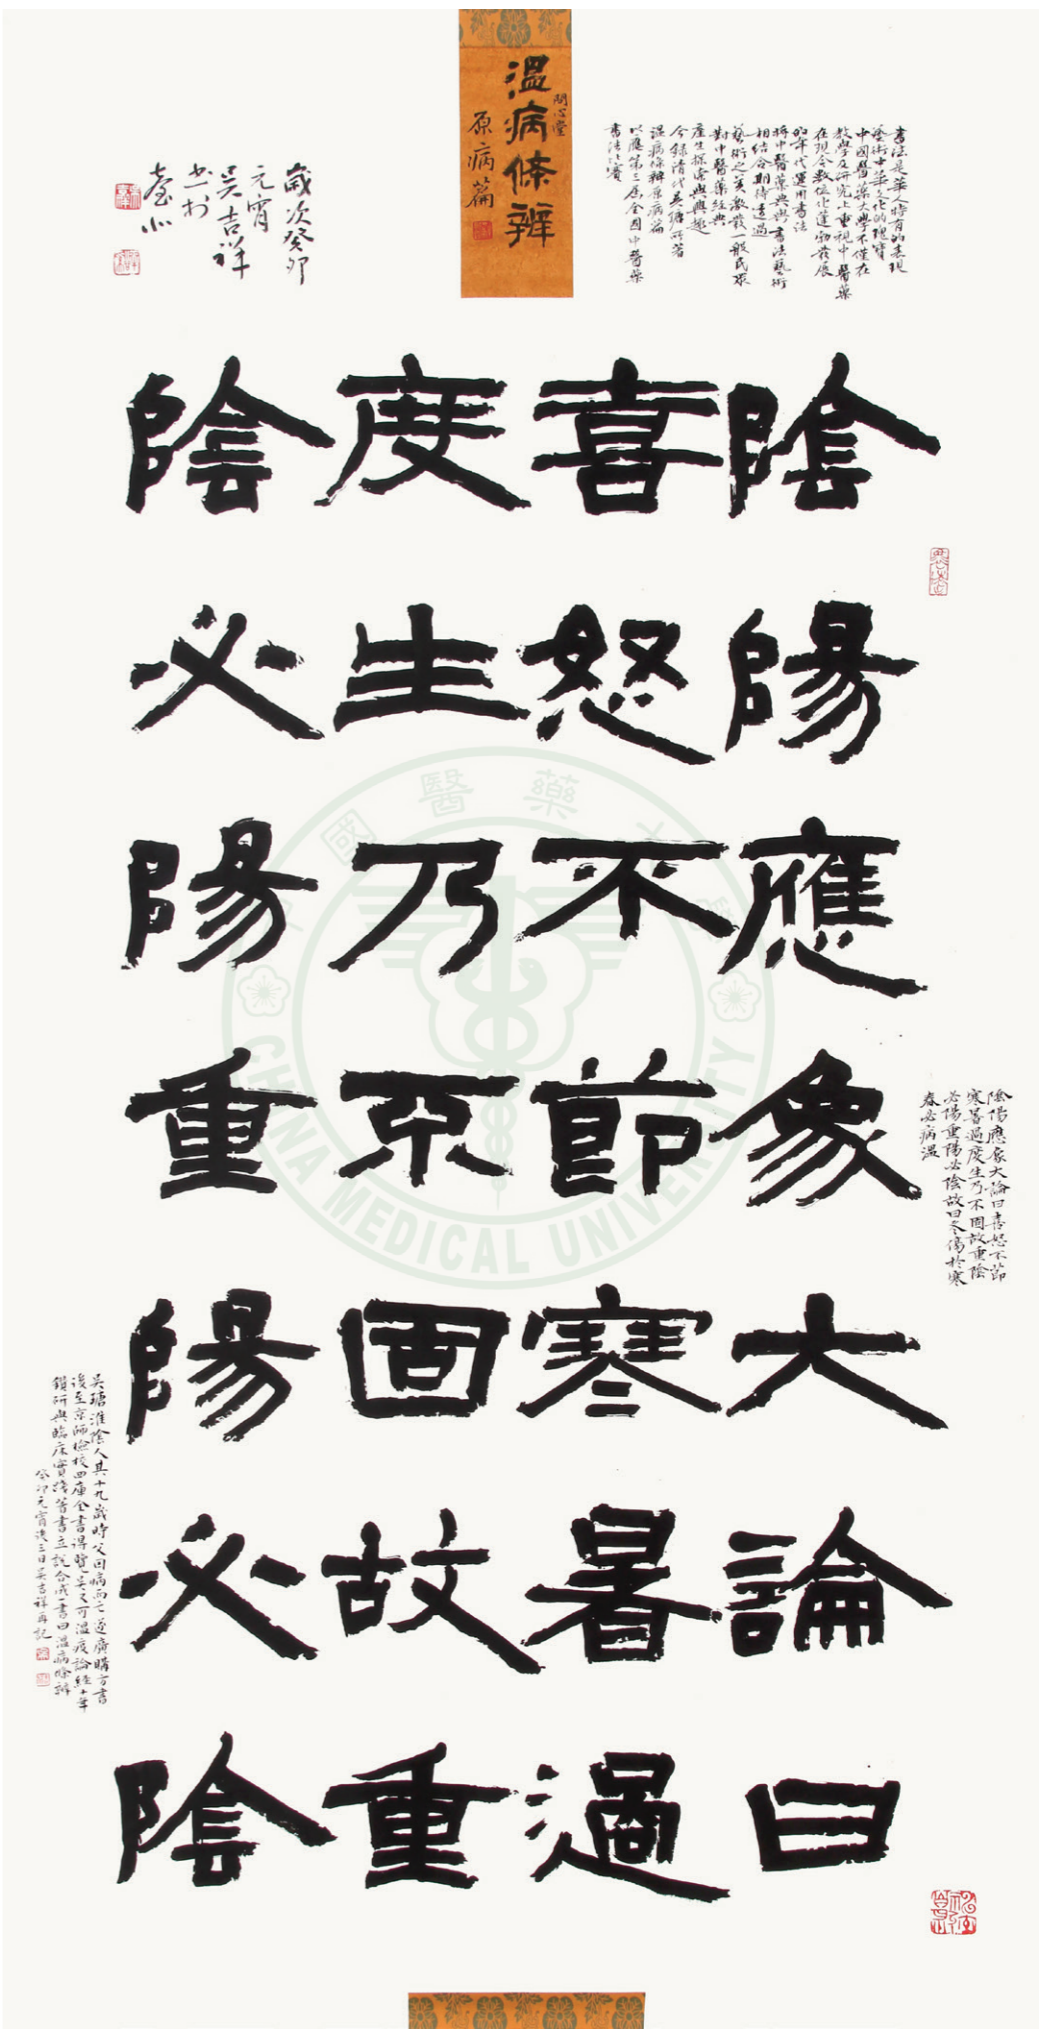 書法是華人特有的表現
藝術中華文化的瑰寶
中國醫藥大學不僅在
教學及研究上重視中醫藥
在現今數位化蓬勃發展
的年代運用書法
將中醫藥典與書法藝術
相結合期待透過
藝術之美激發一般民眾
對中醫藥經典
產生探索與興趣
今錄清代吳瑭所著
溫病條辨原病篇
以應第三屆全國中醫藥
書法比賽
問心堂
溫病條辨
原病篇
歲次癸卯
元宵
吳吉祥
書於
臺北
陰陽應象大論曰
喜怒不節寒暑過
度生乃不固故重
陰必陽重陽必陰
陰陽應象大論曰喜怒不節
寒暑過度生乃不固故重陰
必陽重陽必陰故曰冬傷於寒
春必病溫
吳瑭淮陰人其十九歲時父因病而亡遂廣購方書
後至京師檢校四庫全書得覽吳又可溫疫論經十年
鑽研與臨床實踐著書立說合成一書曰溫病條辨
癸卯元宵後三日吳吉祥再記
中國醫藥大學
CHINA MEDICAL UNIVERSITY